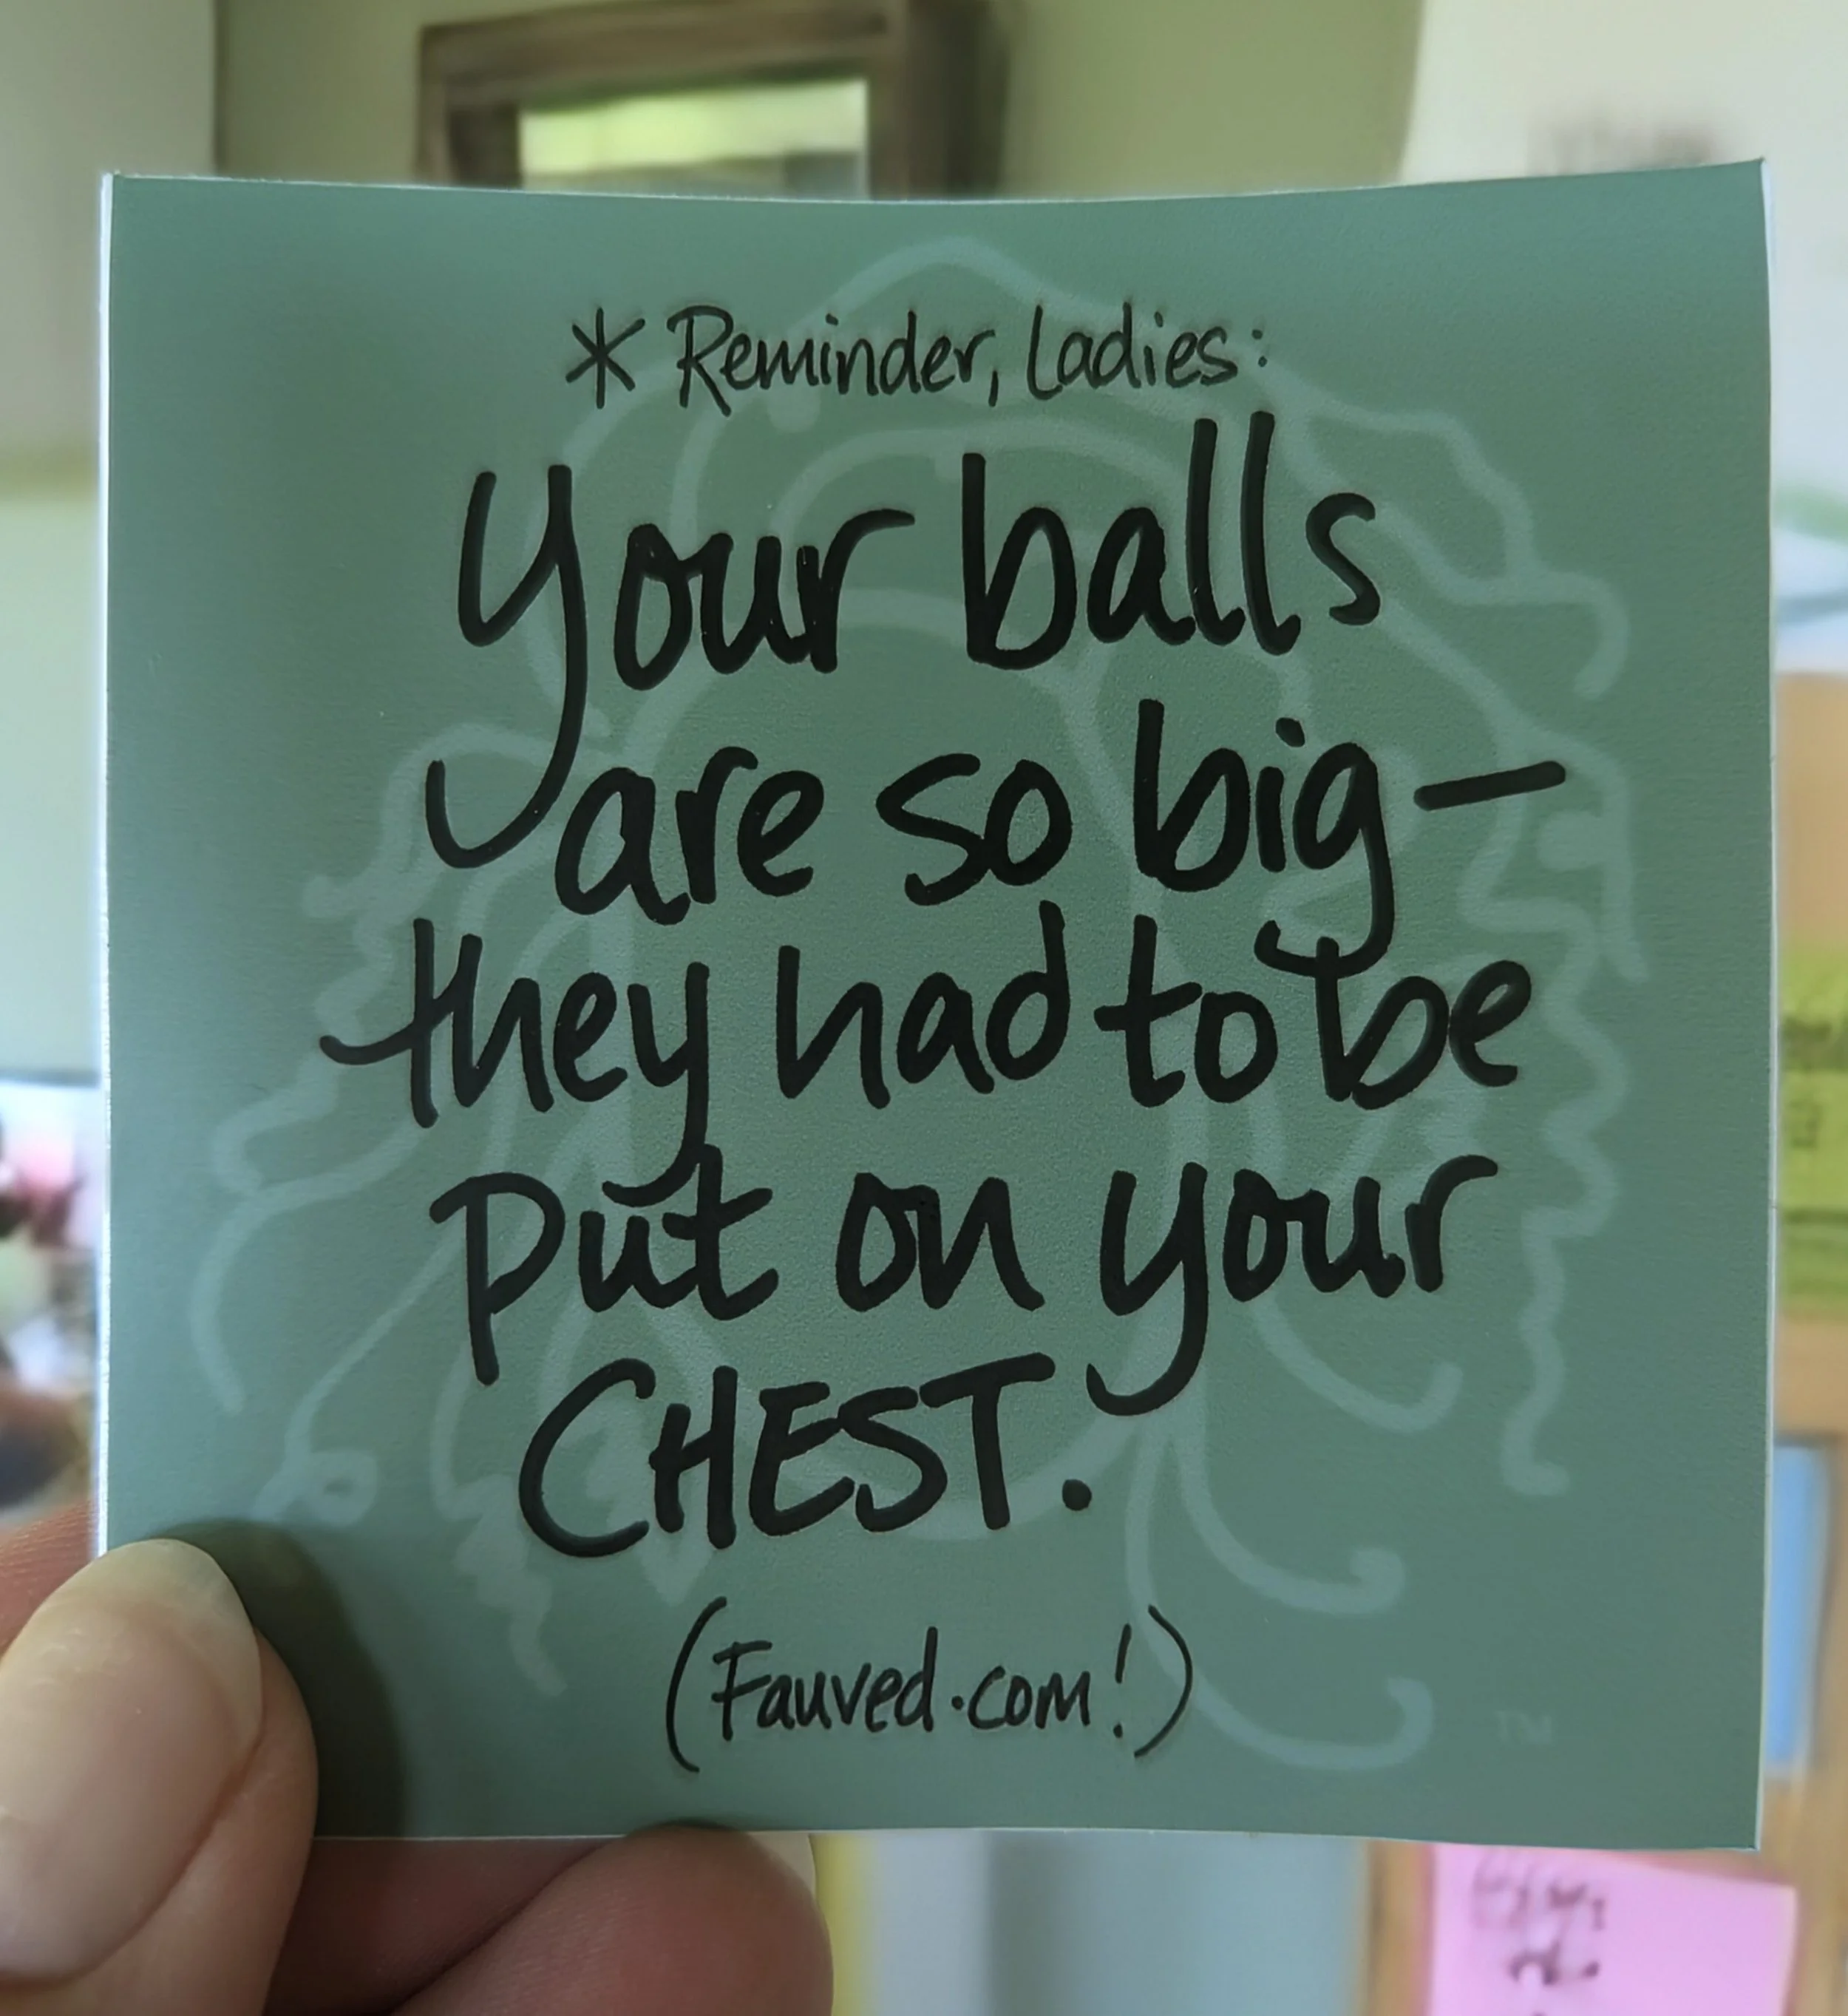 * Reminder, Ladies:
Your balls
are so big—
they had to be
put on your
CHEST.
(Fauved.com!)
TM